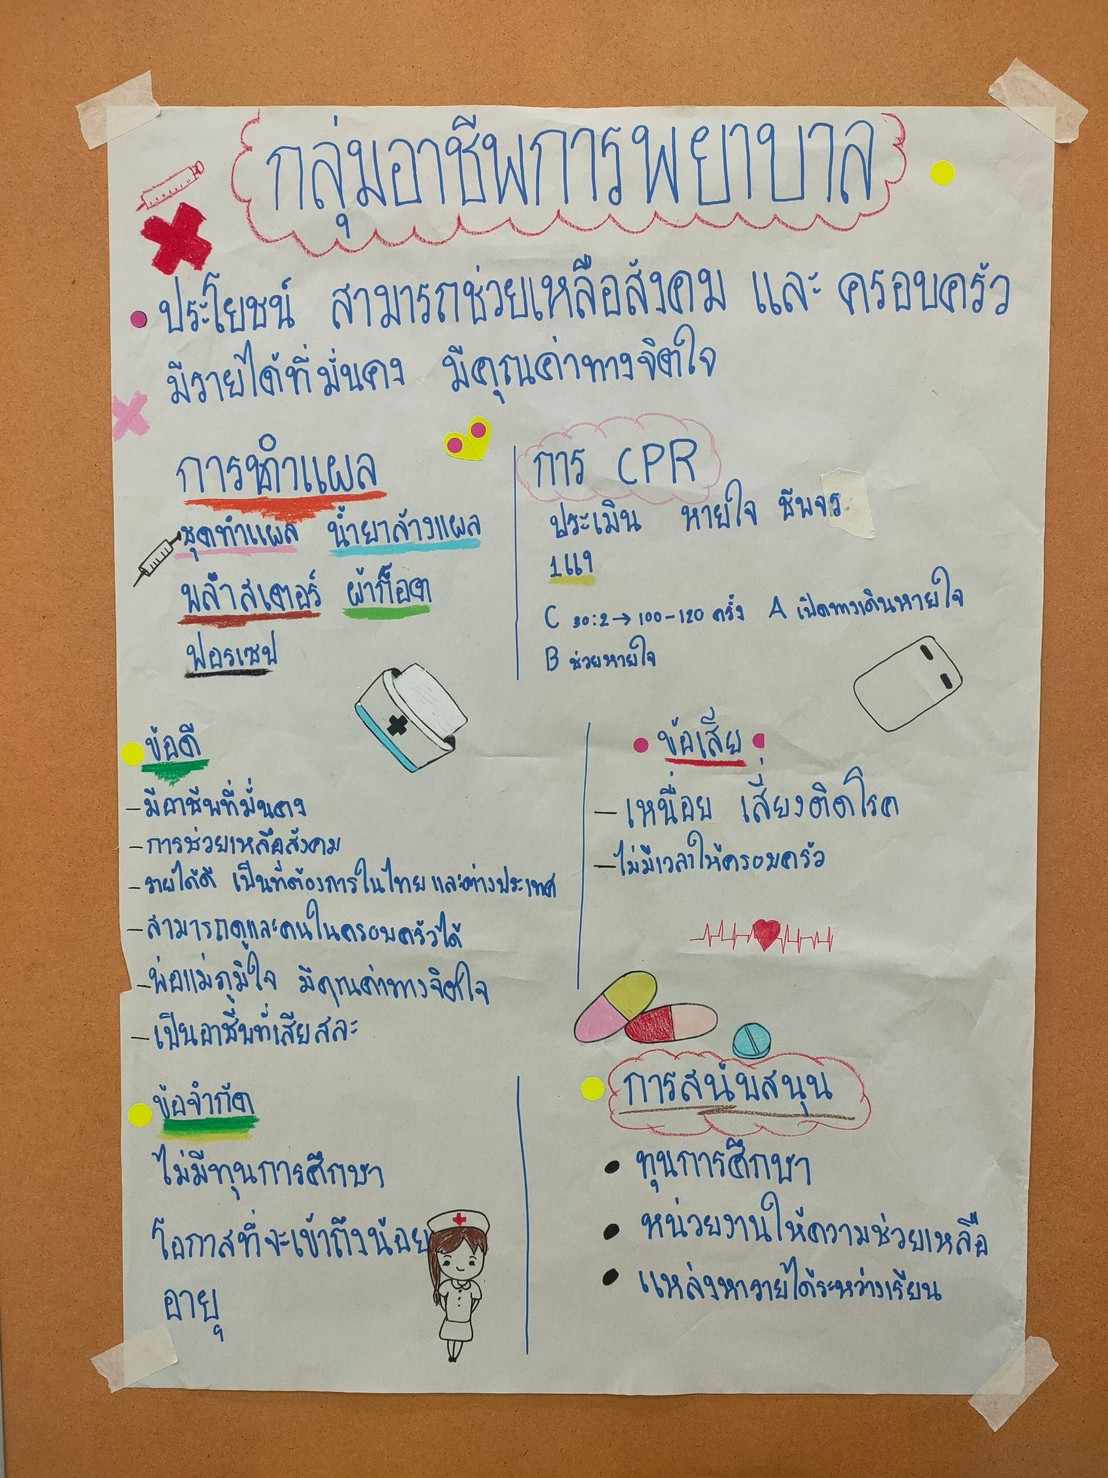 กลุ่มอาชีพการพยาบาล
ประโยชน์ สามารถช่วยเหลือสังคม และ ครอบครัว
มีรายได้ที่มั่นคง มีคุณค่าทางจิตใจ
การทำแผล
ชุดทำแผล น้ำยาล้างแผล
พลาสเตอร์ ผ้าก็อต
ฟอร์เซป
การ CPR
ประเมิน หายใจ ชีพจร
C 30:2→100-120 ครั้ง A เปิดทางเดินหายใจ
B ช่วยหายใจ
ข้อดี
-มีอาชีพที่มั่นคง
-การช่วยเหลือสังคม
-รายได้ดี เป็นที่ต้องการในไทย และต่างประเทศ
-สามารถดูแลคนในครอบครัวได้
-พ่อแม่ภูมิใจ มีคุณค่าทางจิตใจ
-เป็นอาชีพที่เสียสละ
ข้อเสีย
-เหนื่อย เสี่ยงติดโรค
-ไม่มีเวลาให้ครอบครัว
ข้อจำกัด
ไม่มีทุนการศึกษา
โอกาสที่จะเข้าถึงน้อย
อายุ
การสนับสนุน
• ทุนการศึกษา
• หน่วยงานให้ความช่วยเหลือ
• แหล่งหารายได้ระหว่างเรียน